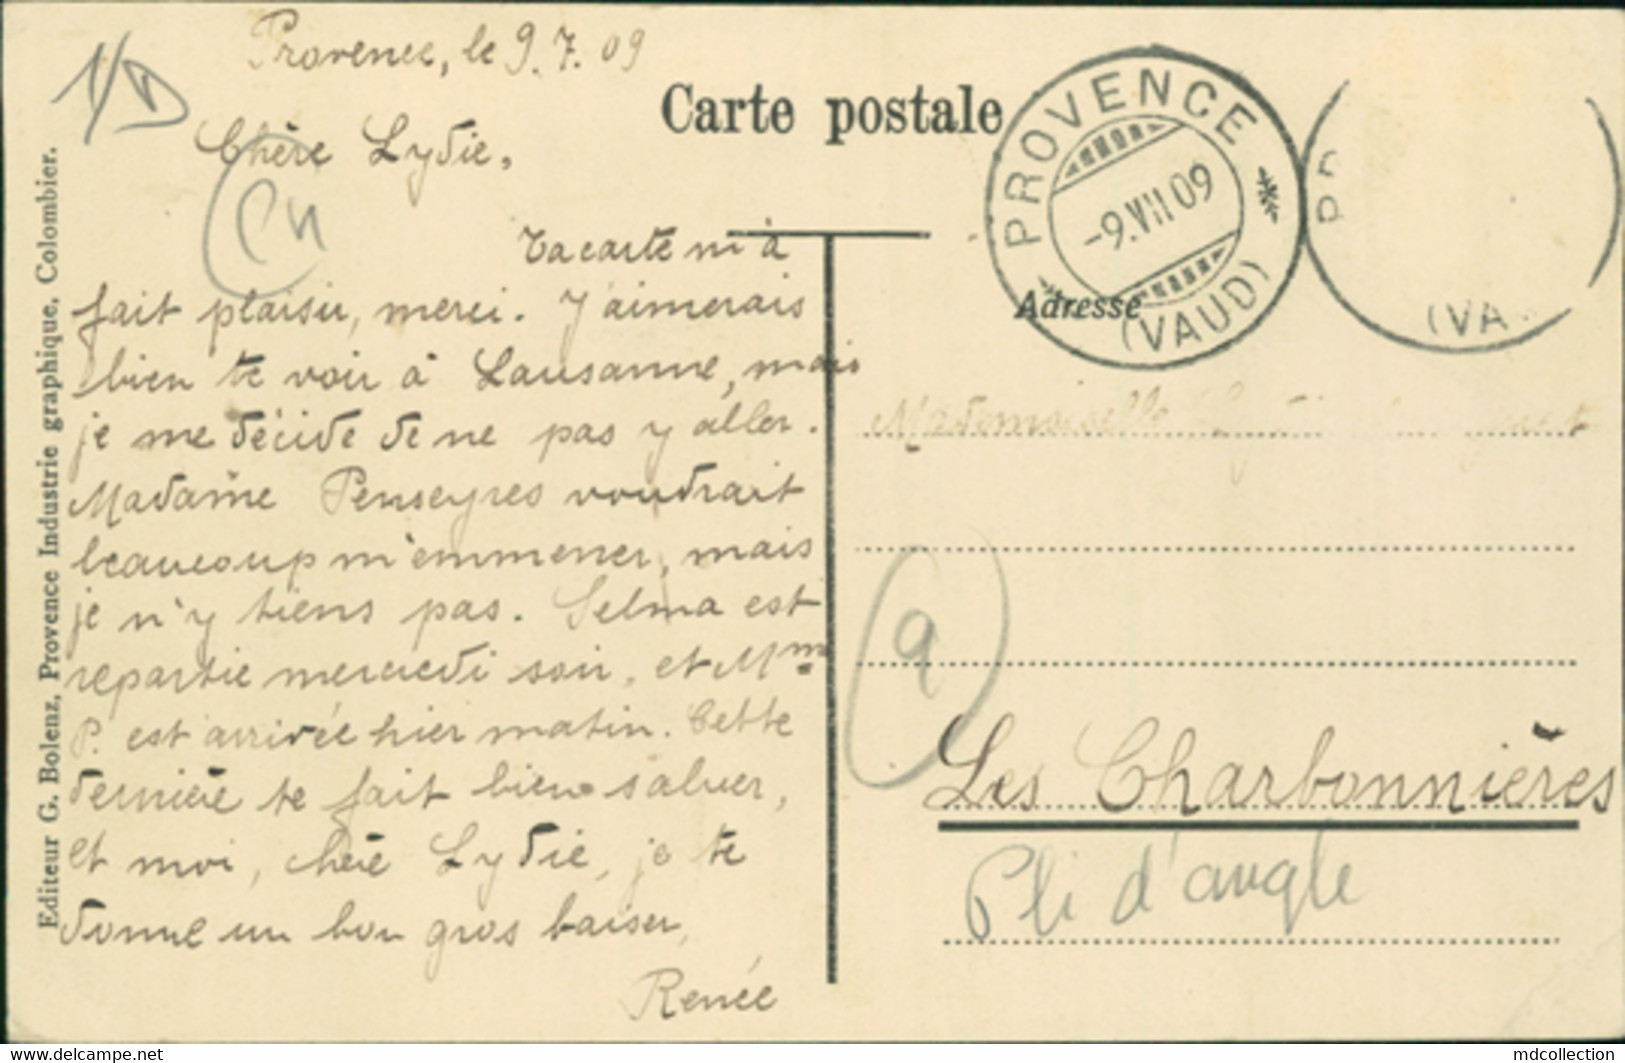 Provence, le 9.7.09
Chère Lydie,
Ta carte m'a
fait plaisir, merci. J'aimerais
bien te voir à Lausanne, mais
je me décide de ne pas y aller.
Madame Penseyres voudrait
beaucoup m'emmener, mais
je n'y tiens pas. Selma est
repartie mercredi soir, et Mme
P. est arrivée hier matin. Cette
dernière te fait bien saluer,
et moi, chère Lydie, je te
donne un bon gros baiser,
Renée
Editeur G. Bolenz, Provence Industrie graphique, Colombier.
Carte postale
PROVENCE
-9.VII 09
(VAUD)
(VA
Adresse
Mademoiselle
a
Les Charbonnières
Pli d'angle
https://www.delcampe.net
mdcollection